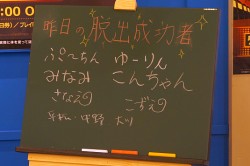 00:0
昨日の脱出成功者
ぷ〜ちん ゆーりん
みなみ こんちゃん
さなえ こずえ
中野